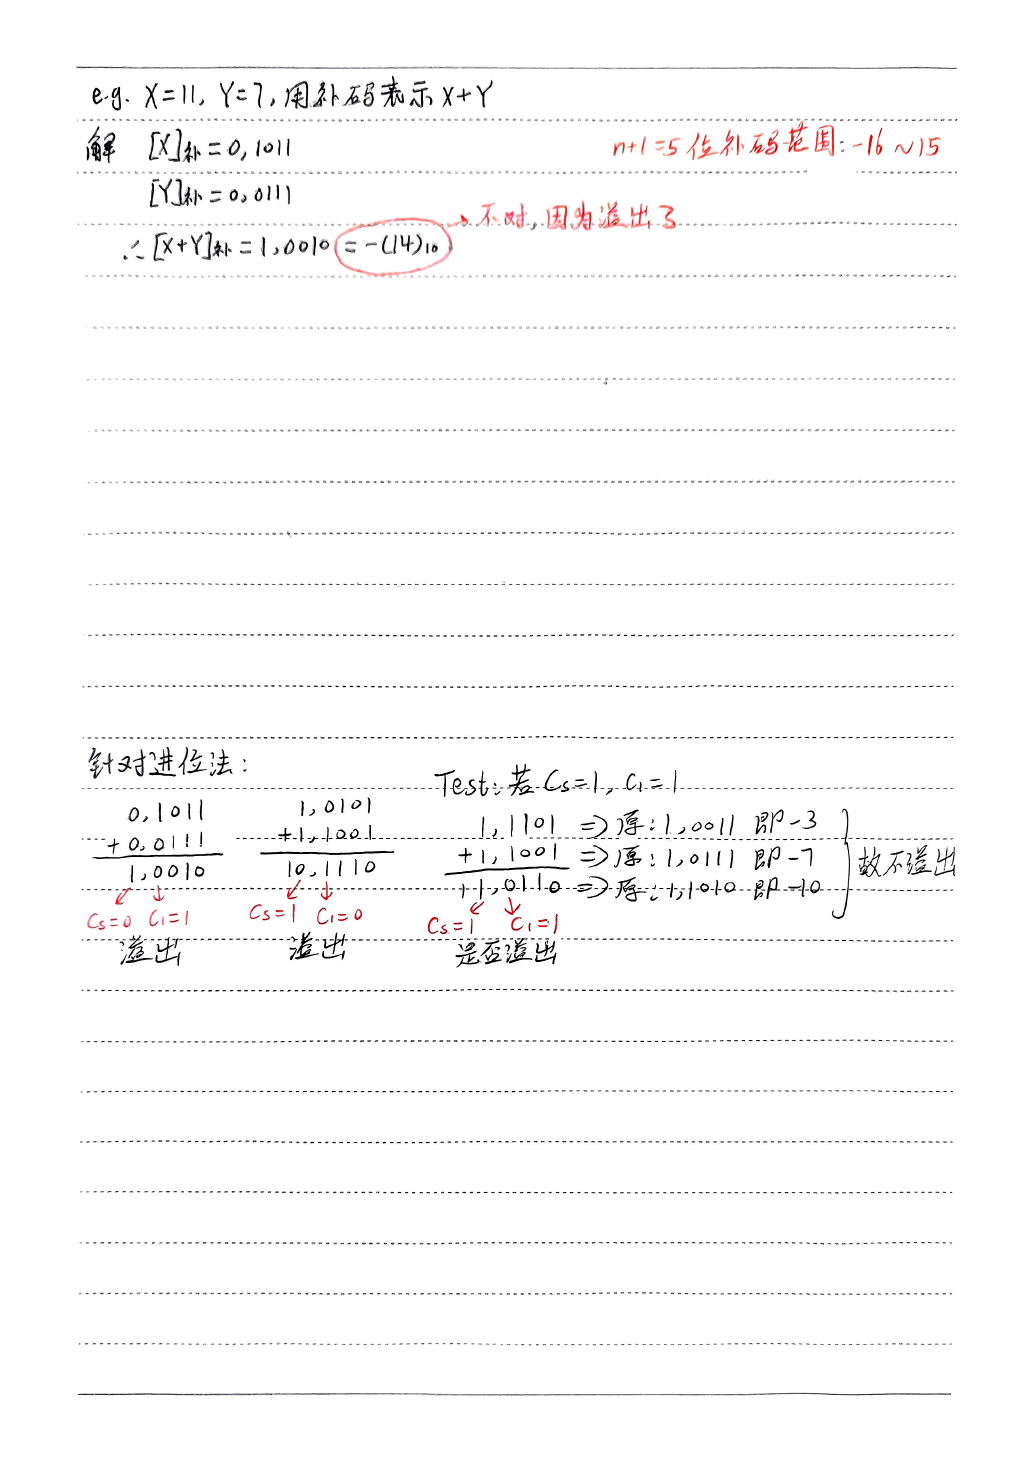 e.g. X=11, Y=7, 用补码表示 X+Y
解 [X]补=0,1011
n+1=5位补码范围:-16~15
[Y]补=0,0111
不对,因为溢出了
∴[X+Y]补=1,0010=-(14)₁₀
针对进位法:
Test:若Cs=1, C₁=1
0,1011
+0,0111
1,0010
Cs=0 C₁=1
溢出
1,0101
+1,1001
10,1110
Cs=1 C₁=0
溢出
1,1101 => 原:1,0011 即-3
+1,1001 => 原:1,0111 即-7
11,0110 => 原:1,1010 即-10
故不溢出
Cs=1 C₁=1
是否溢出